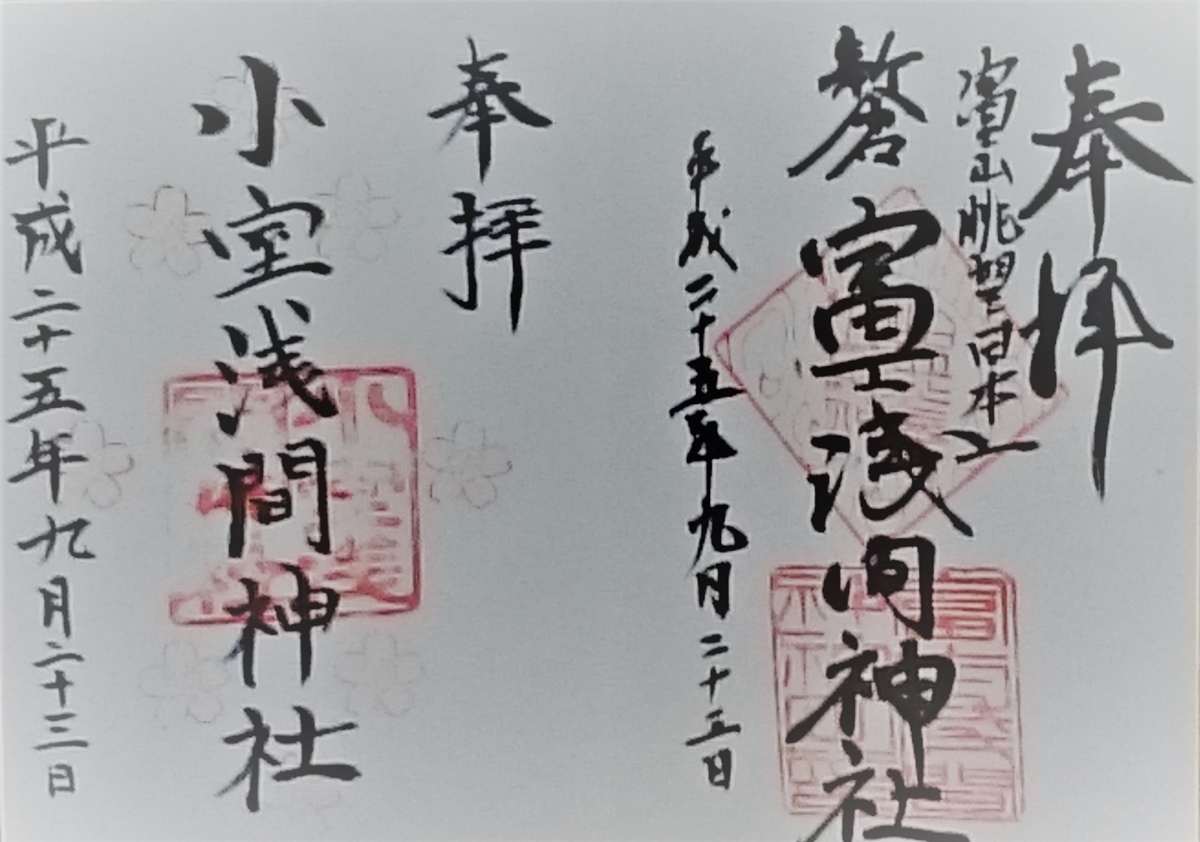 奉拝
冨士山眺望日本一
新倉冨士浅間神社
平成二十五年九月二十三日
奉拝
小室浅間神社
平成二十五年九月二十三日